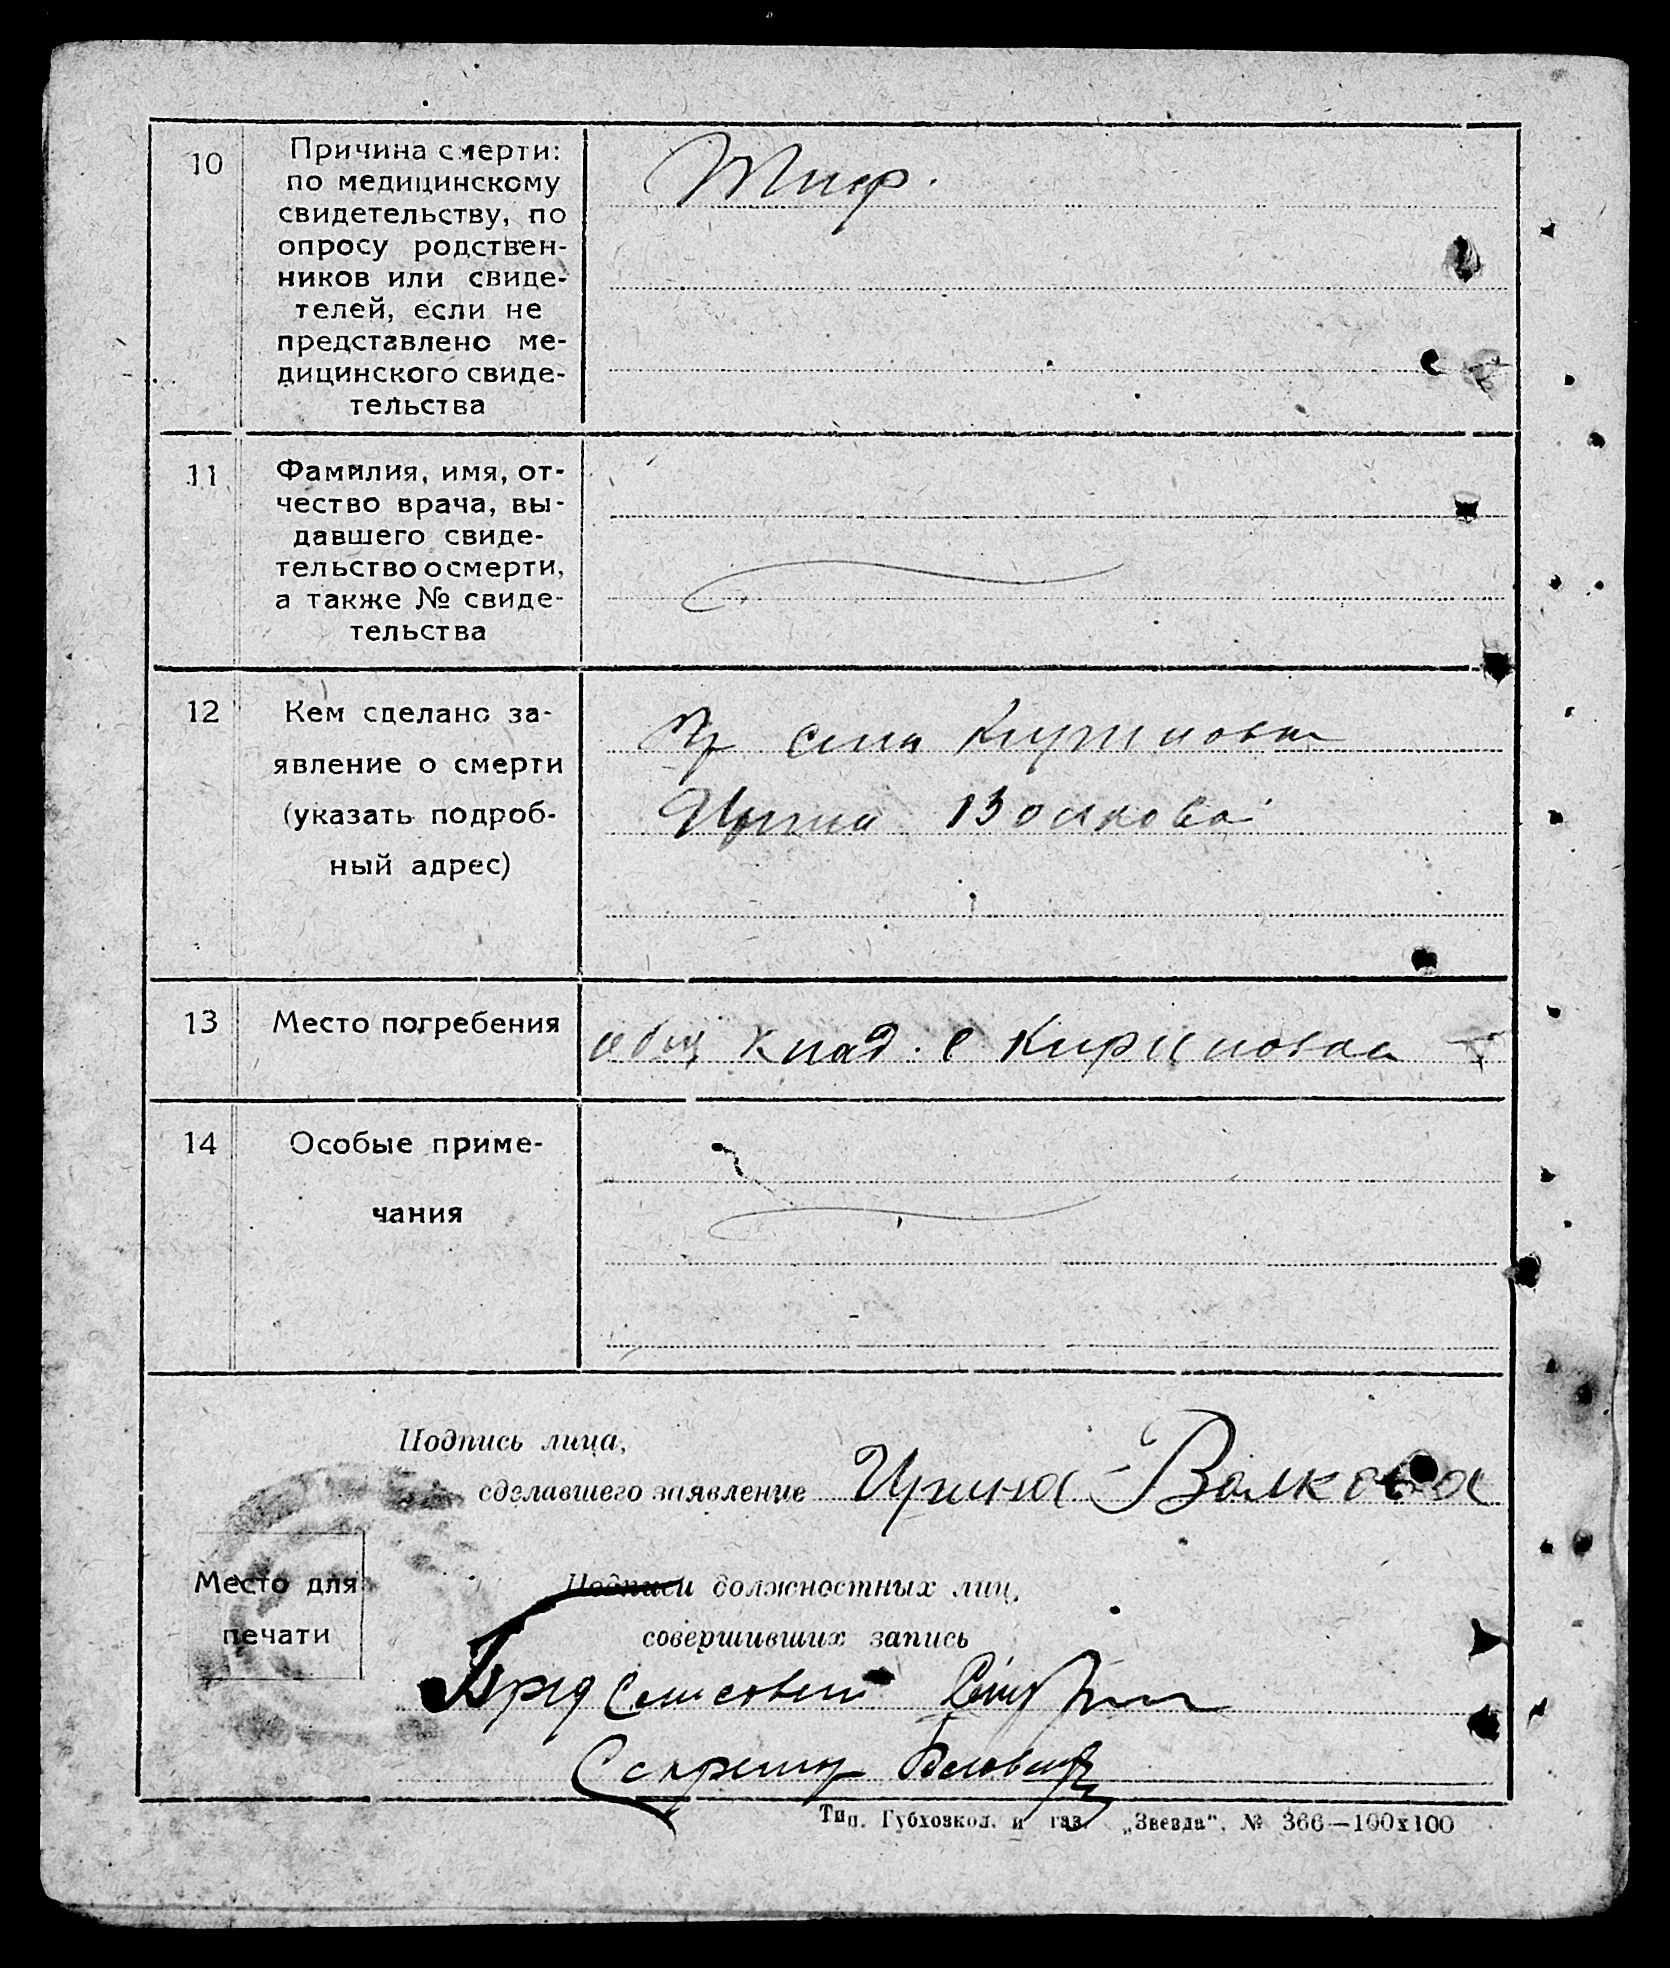 10
Причина смерти:
по медицинскому
свидетельству, по
опросу родствен-
ников или свиде-
телей, если не
представлено ме-
дицинского свиде-
тельства
Тиф.
11
Фамилия, имя, от-
чество врача, вы-
давшего свиде-
тельство о смерти,
а также № свиде-
тельства
12
Кем сделано за-
явление о смерти
(указать подроб-
ный адрес)
Гр села
Ирина Волкова
13
Место погребения
общ клад. с
14
Особые приме-
чания
Подпись лица,
сделавшего заявление Ирина Волкова
Место для
печати
Подписи должностных лиц,
совершивших запись
Пред
Секретар
Тип. Губховкол. и газ. „Звезда“. № 366—100х100